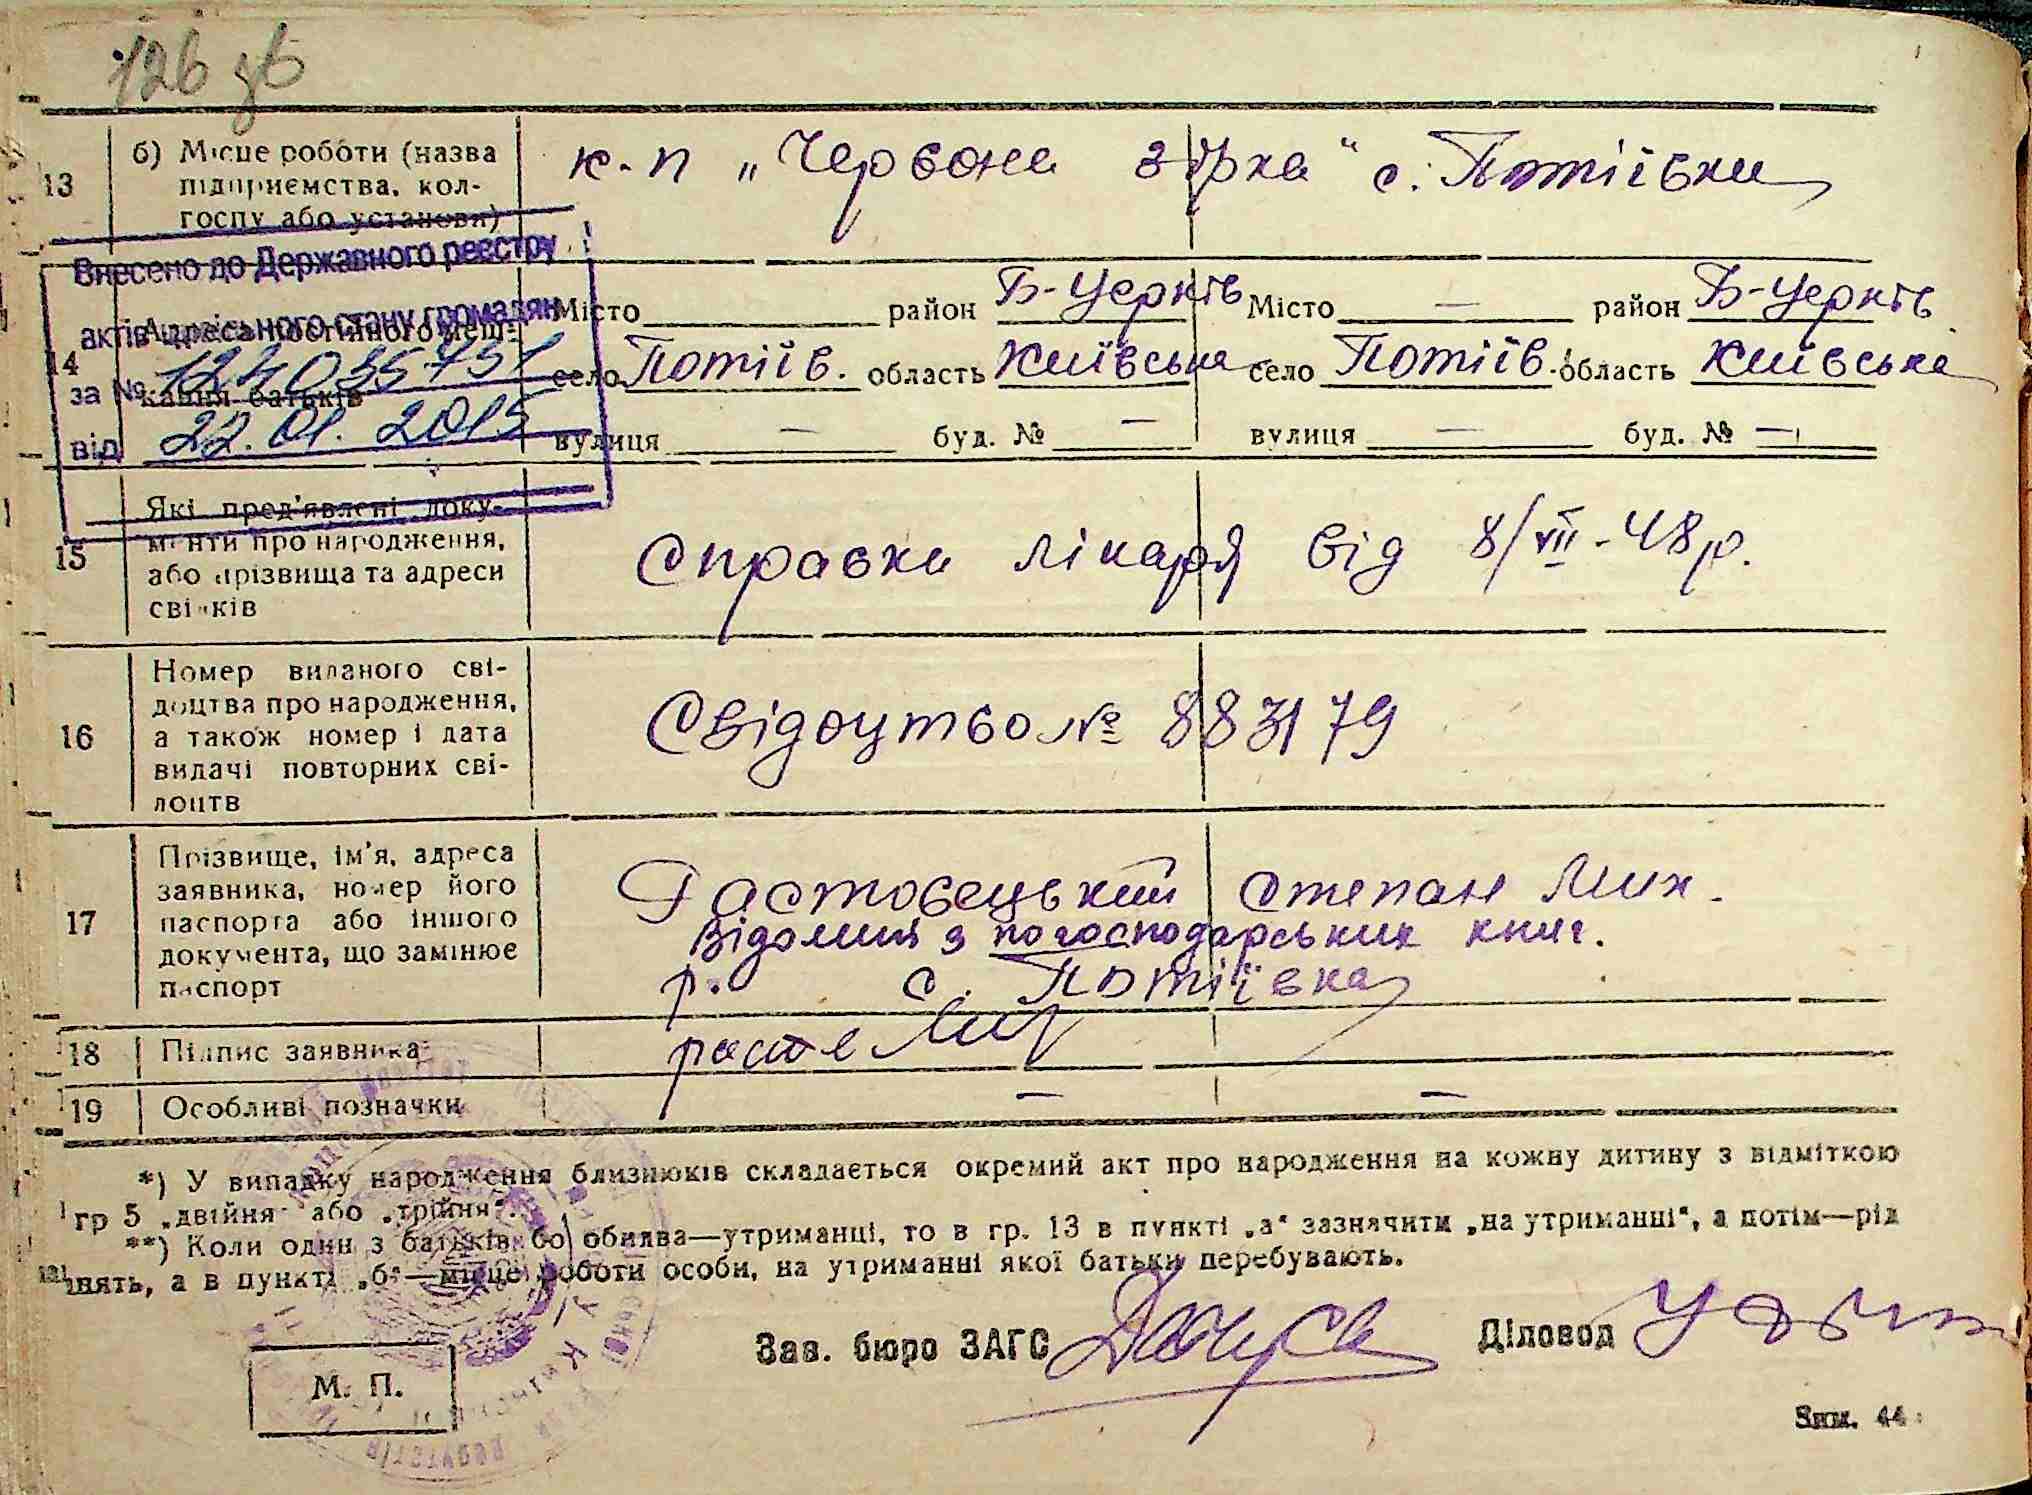 126 зв
13 б) Місце роботи (назва підприємства, колгоспу або установи)
к-п „Червона зірка" с. Потіївки
Внесено до Державного реєстру
актів цивільного стану громадян
за №
від 22.01.2015
14 Адреса постійного мешкання батьків
Місто район Б-Церків Місто — район Б-Церків
село Потіїв. область Київська село Потіїв. область Київська
вулиця — буд. № — вулиця — буд. № —
15 Які пред'явлені документи про народження, або прізвища та адреси свідків
Справка лікаря від 8/VII-48 р.
16 Номер виданого свідоцтва про народження, а також номер і дата видачі повторних свідоцтв
Свідоцтво № 883179
17 Прізвище, ім'я, адреса заявника, номер його паспорта або іншого документа, що замінює паспорт
Растовецький Степан Мих.
Відомия з погосподарських книг.
р. с. Потіївка
18 Підпис заявника
19 Особливі позначки — —
*) У випадку народження близнюків складається окремий акт про народження на кожну дитину з відміткою
гр 5 „двійня" або „трійня".
**) Коли один з батьків бо обидва—утриманці, то в гр. 13 в пункті „а" зазначити „на утриманні", а потім—рід
нять, а в пункті „б"—місце роботи особи, на утриманні якої батьки перебувають.
Зав. бюро ЗАГС Діловод
М. П.
Зим. 44